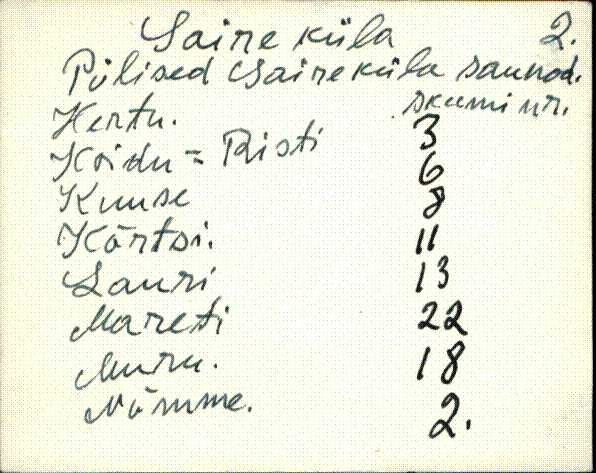 Saire küla 2.
Põlised Saireküla saunad.
skeemi nr.
Hertu. 3
Koidu = Risti 6
Kuuse 8
Kõrtsi. 11
Lauri 13
Mareti 22
Muru. 18
Nõmme. 2.